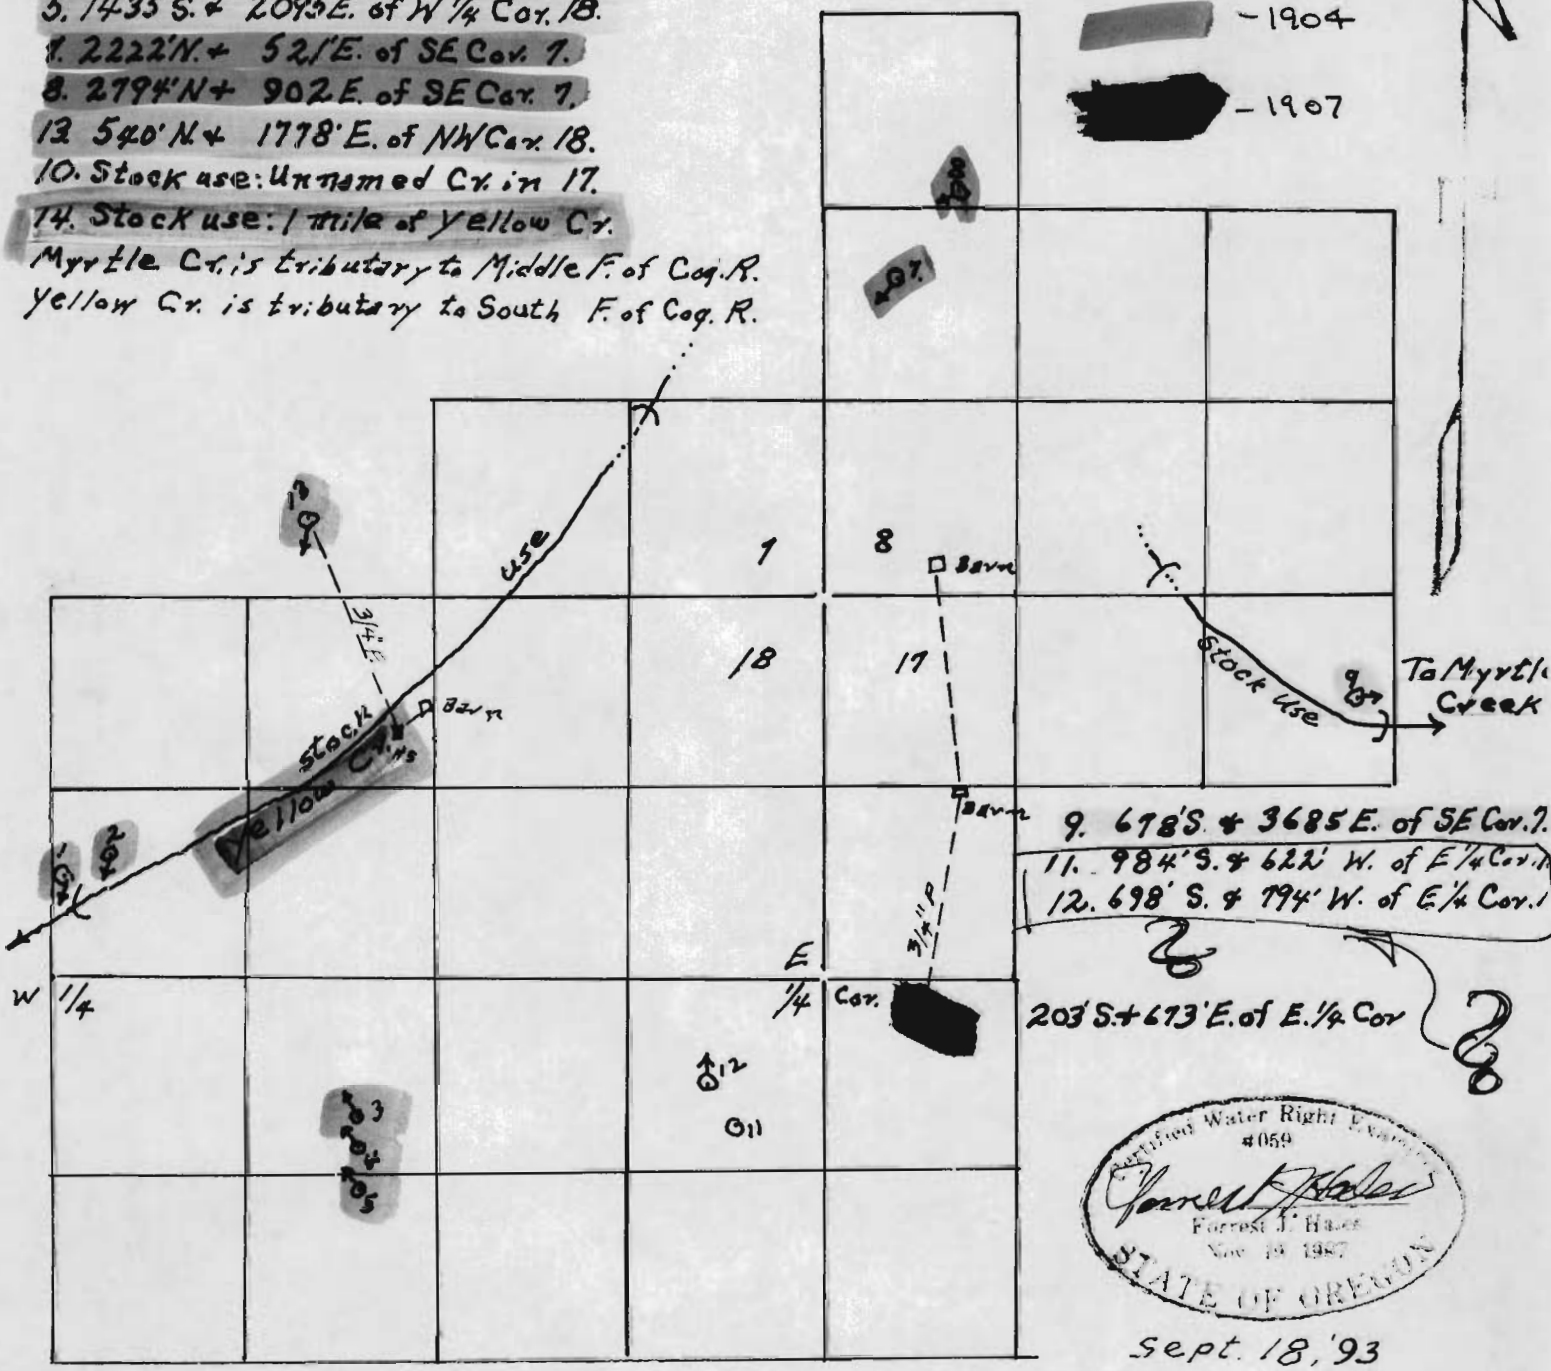 5. 1435 S. & 2095 E. of W 1/4 Cor. 18.
7. 2222' N. + 521' E. of SE Cor. 7.
8. 2794' N + 902 E. of SE Cor. 7.
13 540' N. & 1778' E. of NW Cor. 18.
10. Stock use: Unnamed Cr. in 17.
14. Stock use: 1 mile of Yellow Cr.
Myrtle Cr. is tributary to Middle F. of Coq. R.
Yellow Cr. is tributary to South F. of Coq. R.
- 1904
- 1907
N
8
7
13
use
7
8
Barn
3/4" P.
18
17
Stock Use
9
To Myrtle
Creek
stock
Barn
HS
Yellow Cr.
Barn
1
2
9. 678' S. & 3685 E. of SE Cor. 7.
11. 984' S. & 622' W. of E 1/4 Cor. 1
12. 698' S. & 794' W. of E 1/4 Cor. 1
3/4" P
E
W 1/4
1/4 Cor.
203' S. + 673' E. of E. 1/4 Cor
12
11
3
4
5
Certified Water Right Examiner
#059
Forrest J. Hales
Nov 19 1987
STATE OF OREGON
Sept. 18, '93